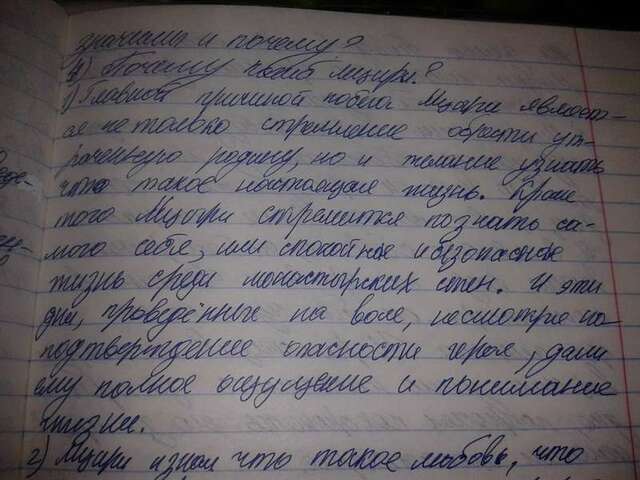 значимы и почему?
4) Почему погиб Мцыри?
1) Главной причиной побега Мцыри являет-
ся не только стремление обрести ут-
раченную родину, но и желание узнать
что такое настоящая жизнь. Кроме
того Мцыри стремится познать са-
мого себя, или спокойное и безопасное
жизнь среди монастырских стен. И эти
дни, проведённые на воле, несмотря на
подтверждение опасности героя, дали
ему полное ощущение и понимание
жизни.
2) Мцыри узнал что такое любовь, что